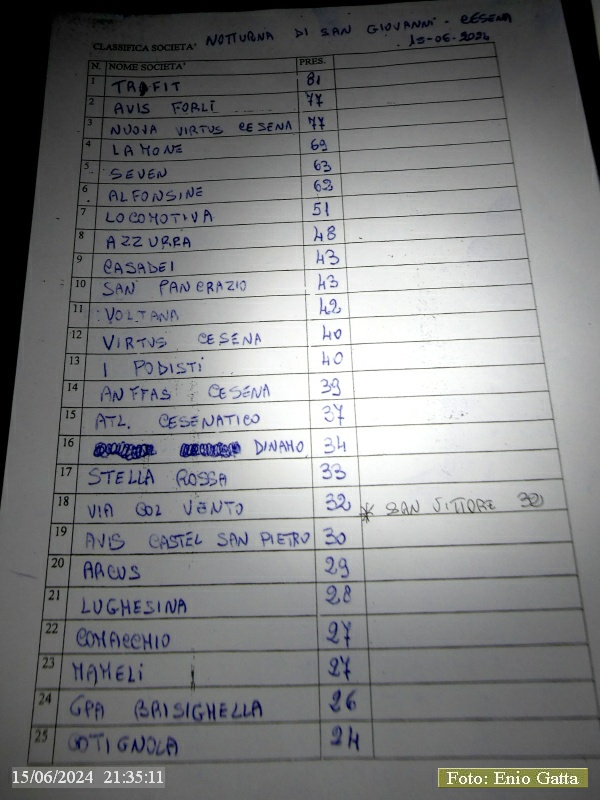 NOTTURNA DI SAN GIOVANNI - CESENA
CLASSIFICA SOCIETA' 15-06-2024
N. NOME SOCIETA' PRES.
1 TRAFIT 81
2 AVIS FORLÌ 77
3 NUOVA VIRTUS CESENA 77
4 LAMONE 69
5 SEVEN 63
6 ALFONSINE 63
7 LOCOMOTIVA 51
8 AZZURRA 48
9 CASADEI 43
10 SAN PANCRAZIO 43
11 VOLTANA 42
12 VIRTUS CESENA 40
13 I PODISTI 40
14 ANFFAS CESENA 39
15 ATL. CESENATICO 37
16 DINAMO 34
17 STELLA ROSSA 33
18 VIA COL VENTO 32 * SAN VITTORE 32
19 AVIS CASTEL SAN PIETRO 30
20 ARCUS 29
21 LUGHESINA 28
22 COMACCHIO 27
23 MAMELI 27
24 GPA BRISIGHELLA 26
25 COTIGNOLA 24
15/06/2024 21:35:11
Foto: Enio Gatta